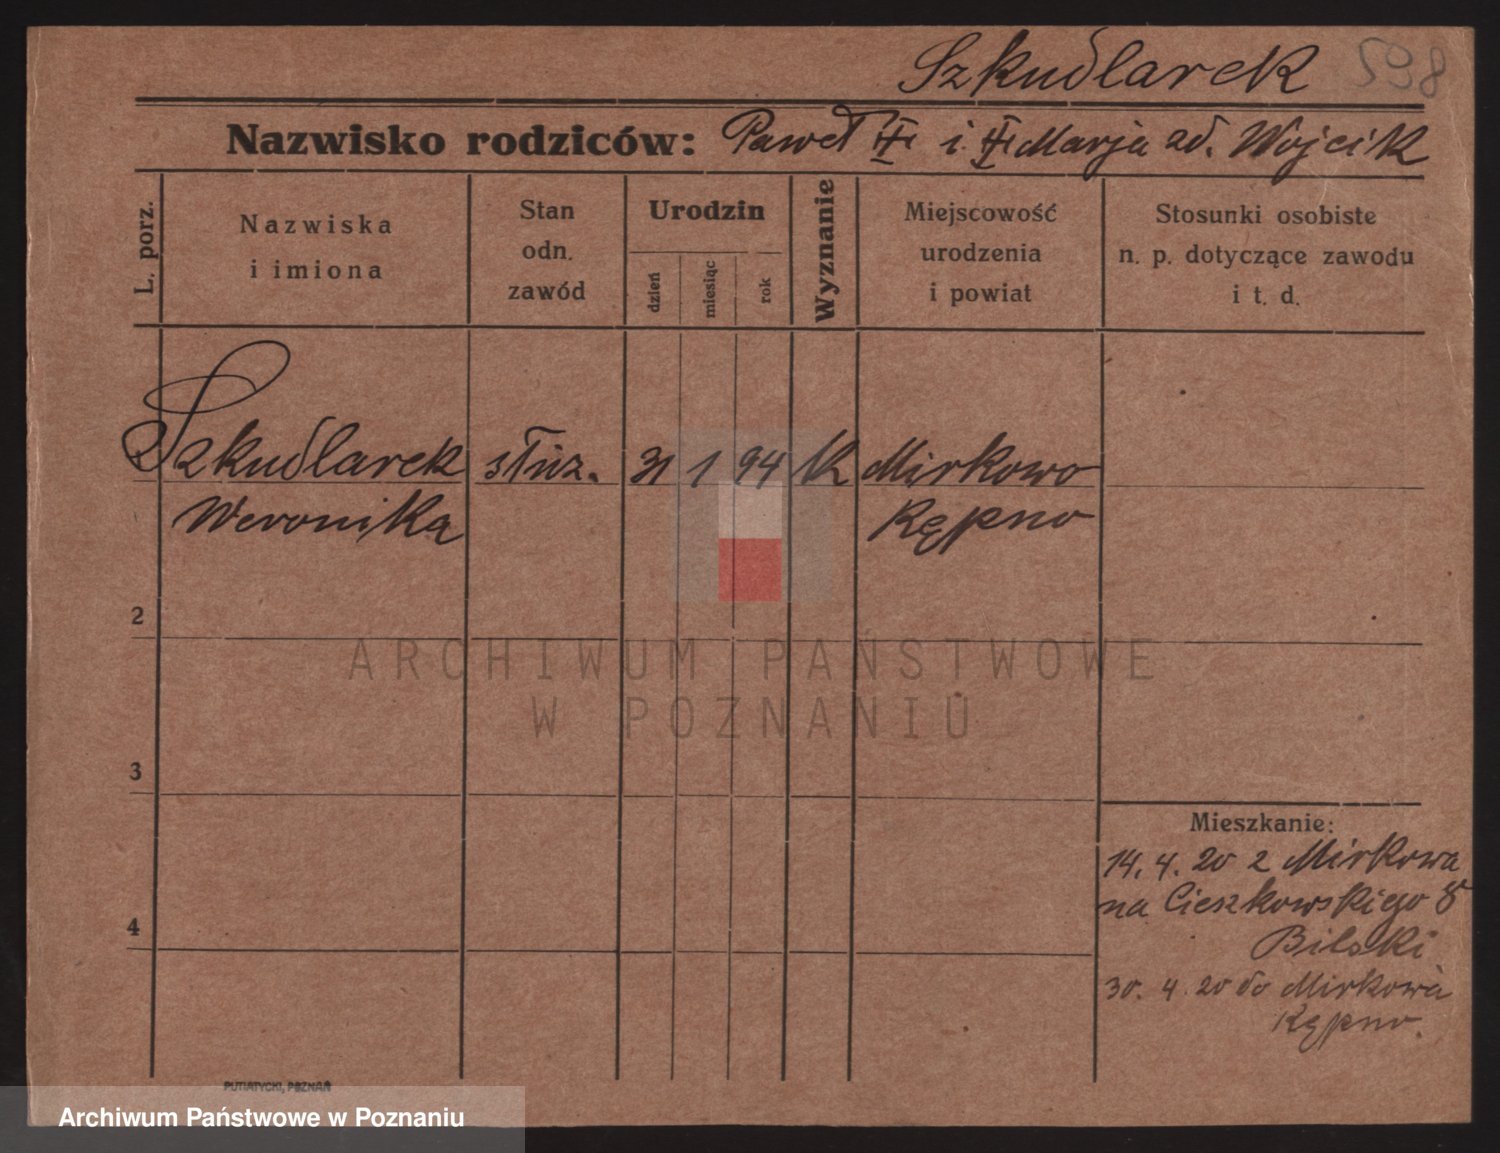 Szkudlarek 598
Nazwisko rodziców: Paweł i Marja zd. Wojcik
L. porz.
Nazwiska
i imiona
Stan
odn.
zawód
Urodzin
dzień
miesiąc
rok
Wyznanie
Miejscowość
urodzenia
i powiat
Stosunki osobiste
n. p. dotyczące zawodu
i t. d.
Szkudlarek służ. 31 1 94 K Mirkowo
Weronika Kępno
2
3
4
ARCHIWUM PAŃSTWOWE
W POZNANIU
Mieszkanie:
14. 4. 20 z Mirkowa
na Cieszkowskiego 8
Bilski
30. 4. 20 do Mirkowa
Kępno.
PUTIATYCKI, POZNAŃ
Archiwum Państwowe w Poznaniu